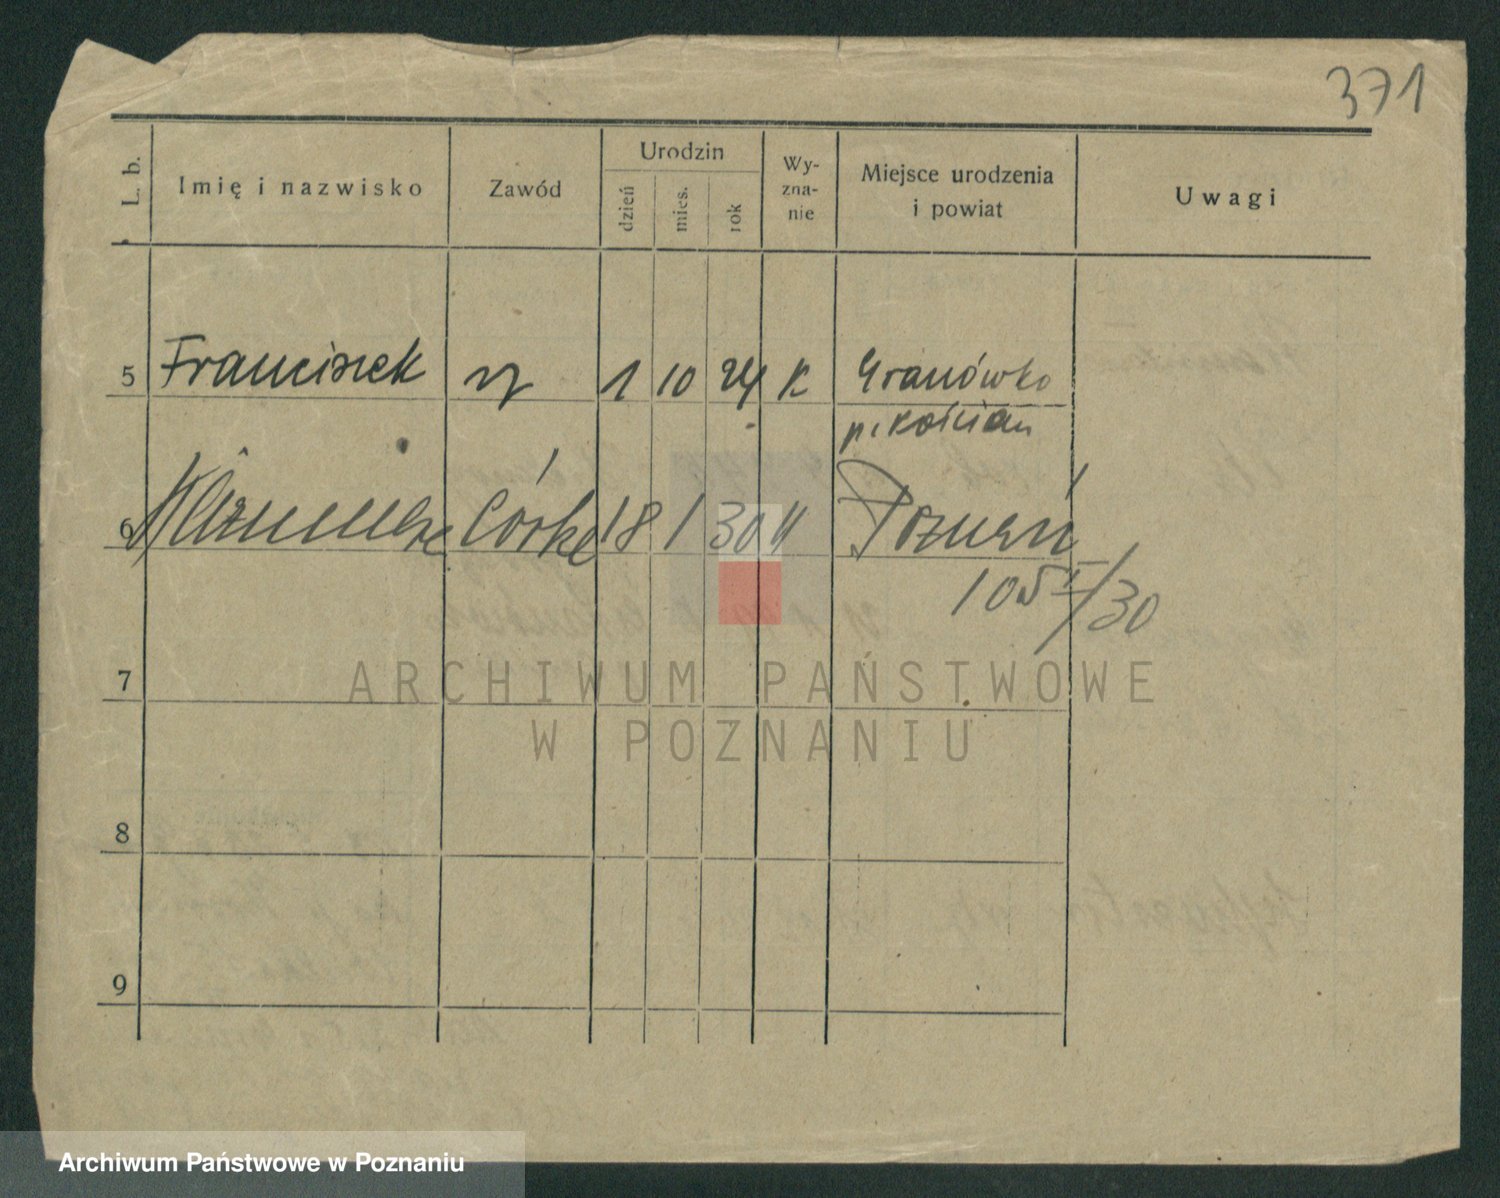 371
L. b. Imię i nazwisko Zawód Urodzin dzień mies. rok Wy-zna-nie Miejsce urodzenia i powiat Uwagi
5 Franciszek 1 10 24 K Granówko
p. Kościan
6 Córka 18 1 30 Poznań
10 /30
7
8
9
ARCHIWUM PAŃSTWOWE
W POZNANIU
Archiwum Państwowe w Poznaniu